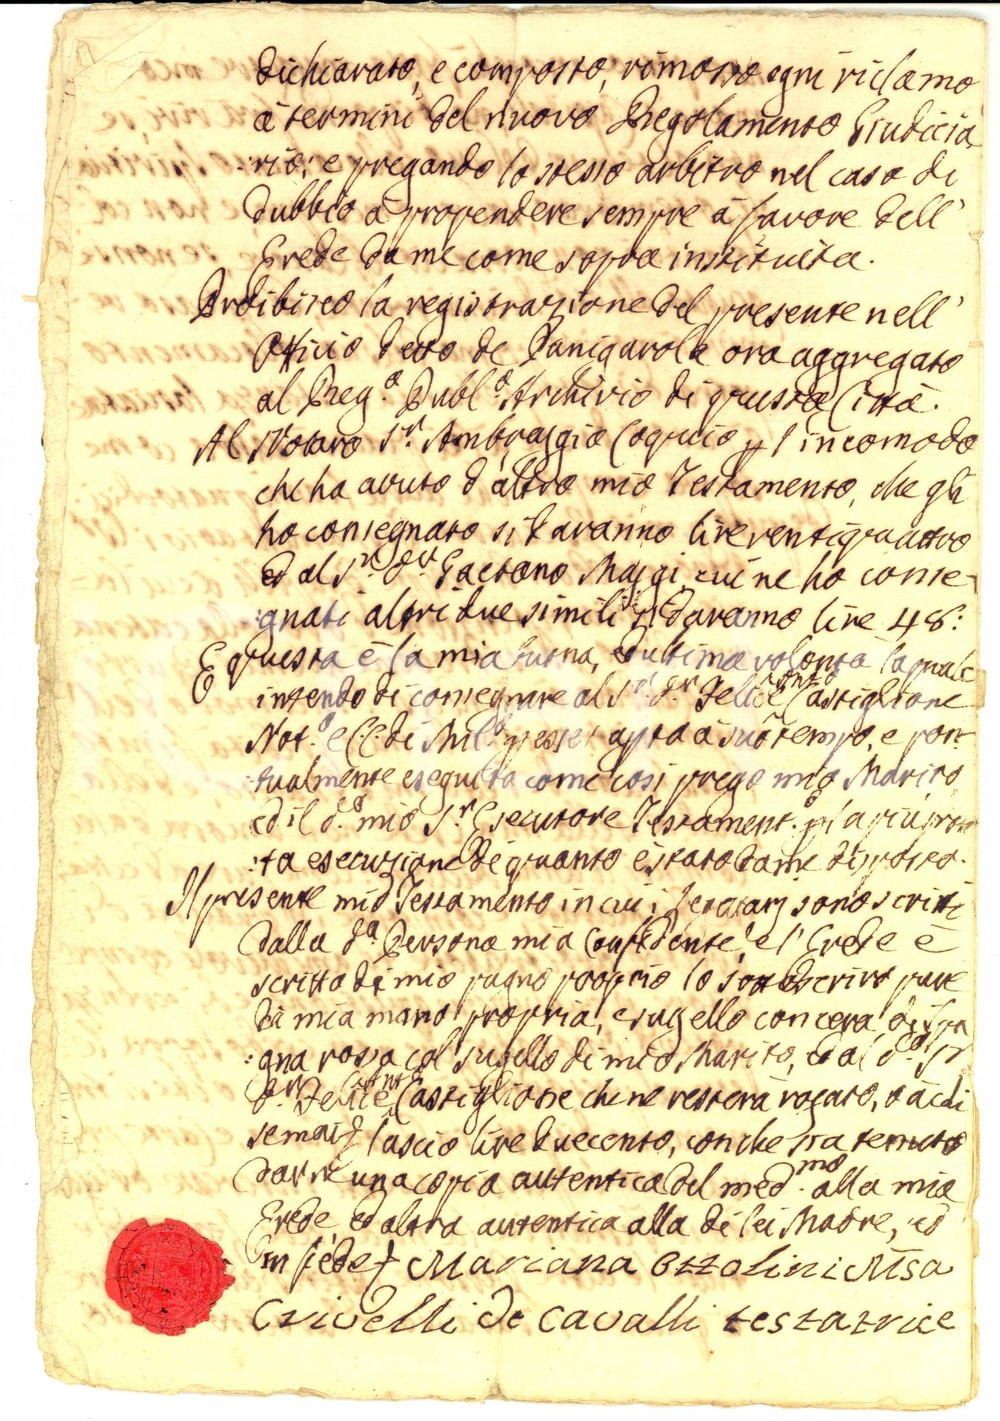 dichiarato, e composto, rimosso ogni riclamo
à termini del nuovo Regolamento Giudicia
:rio; e pregando lo stesso arbitro nel caso di
dubbio à propendere sempre à favore dell'
Erede da me come sopra instituita.
Proibisco la registrazione del presente nell'
Officio detto de Panigarola ora aggregato
al Reg.º Publ.º Archivio di questa Città.
Al Notaro S.r Ambraggio Cogucio p l'incomodo
che ha avuto d'altro mio Testamento, che gli
ho consegnato si daranno lire ventiquattro
ed al S.r D.r Gaetano Maggi, cui ne ho conse-
:gnati altri due simili si daranno lire 48:
E questa è la mia ultima volontà la quale
intendo di consegnare al S.r D.r Felice Castiglione
Not.º e C.C. di Mil.º p esser aperta à suo tempo, e pon-
:tualmente eseguita come così prego mio Marito
ed il d.º mio S.r Esecutore Testament.º p la più pron
:ta esecuzione di quanto è stato da me disposto.
Il presente mio Testamento in cui i Legatarj sono scritti
dalla d.a Persona mia Confidente, e l'Erede è
scritto di mio pugno proprio lo sottoscrivo pure
di mia mano propria, e sugello con cera di Spa
:gna rossa col sugello di mio Marito, ed al d.º S.r
D.r Felice Castiglione che ne resterà rogato, o à chi
lascio lire duecento, con che sia tenuto
darne una copia autentica del med.mo alla mia
Erede, ed altra autentica alla di lei Madre, ed
in fede Mariana Ozzolini
Crivelli de Cavalli testatrice